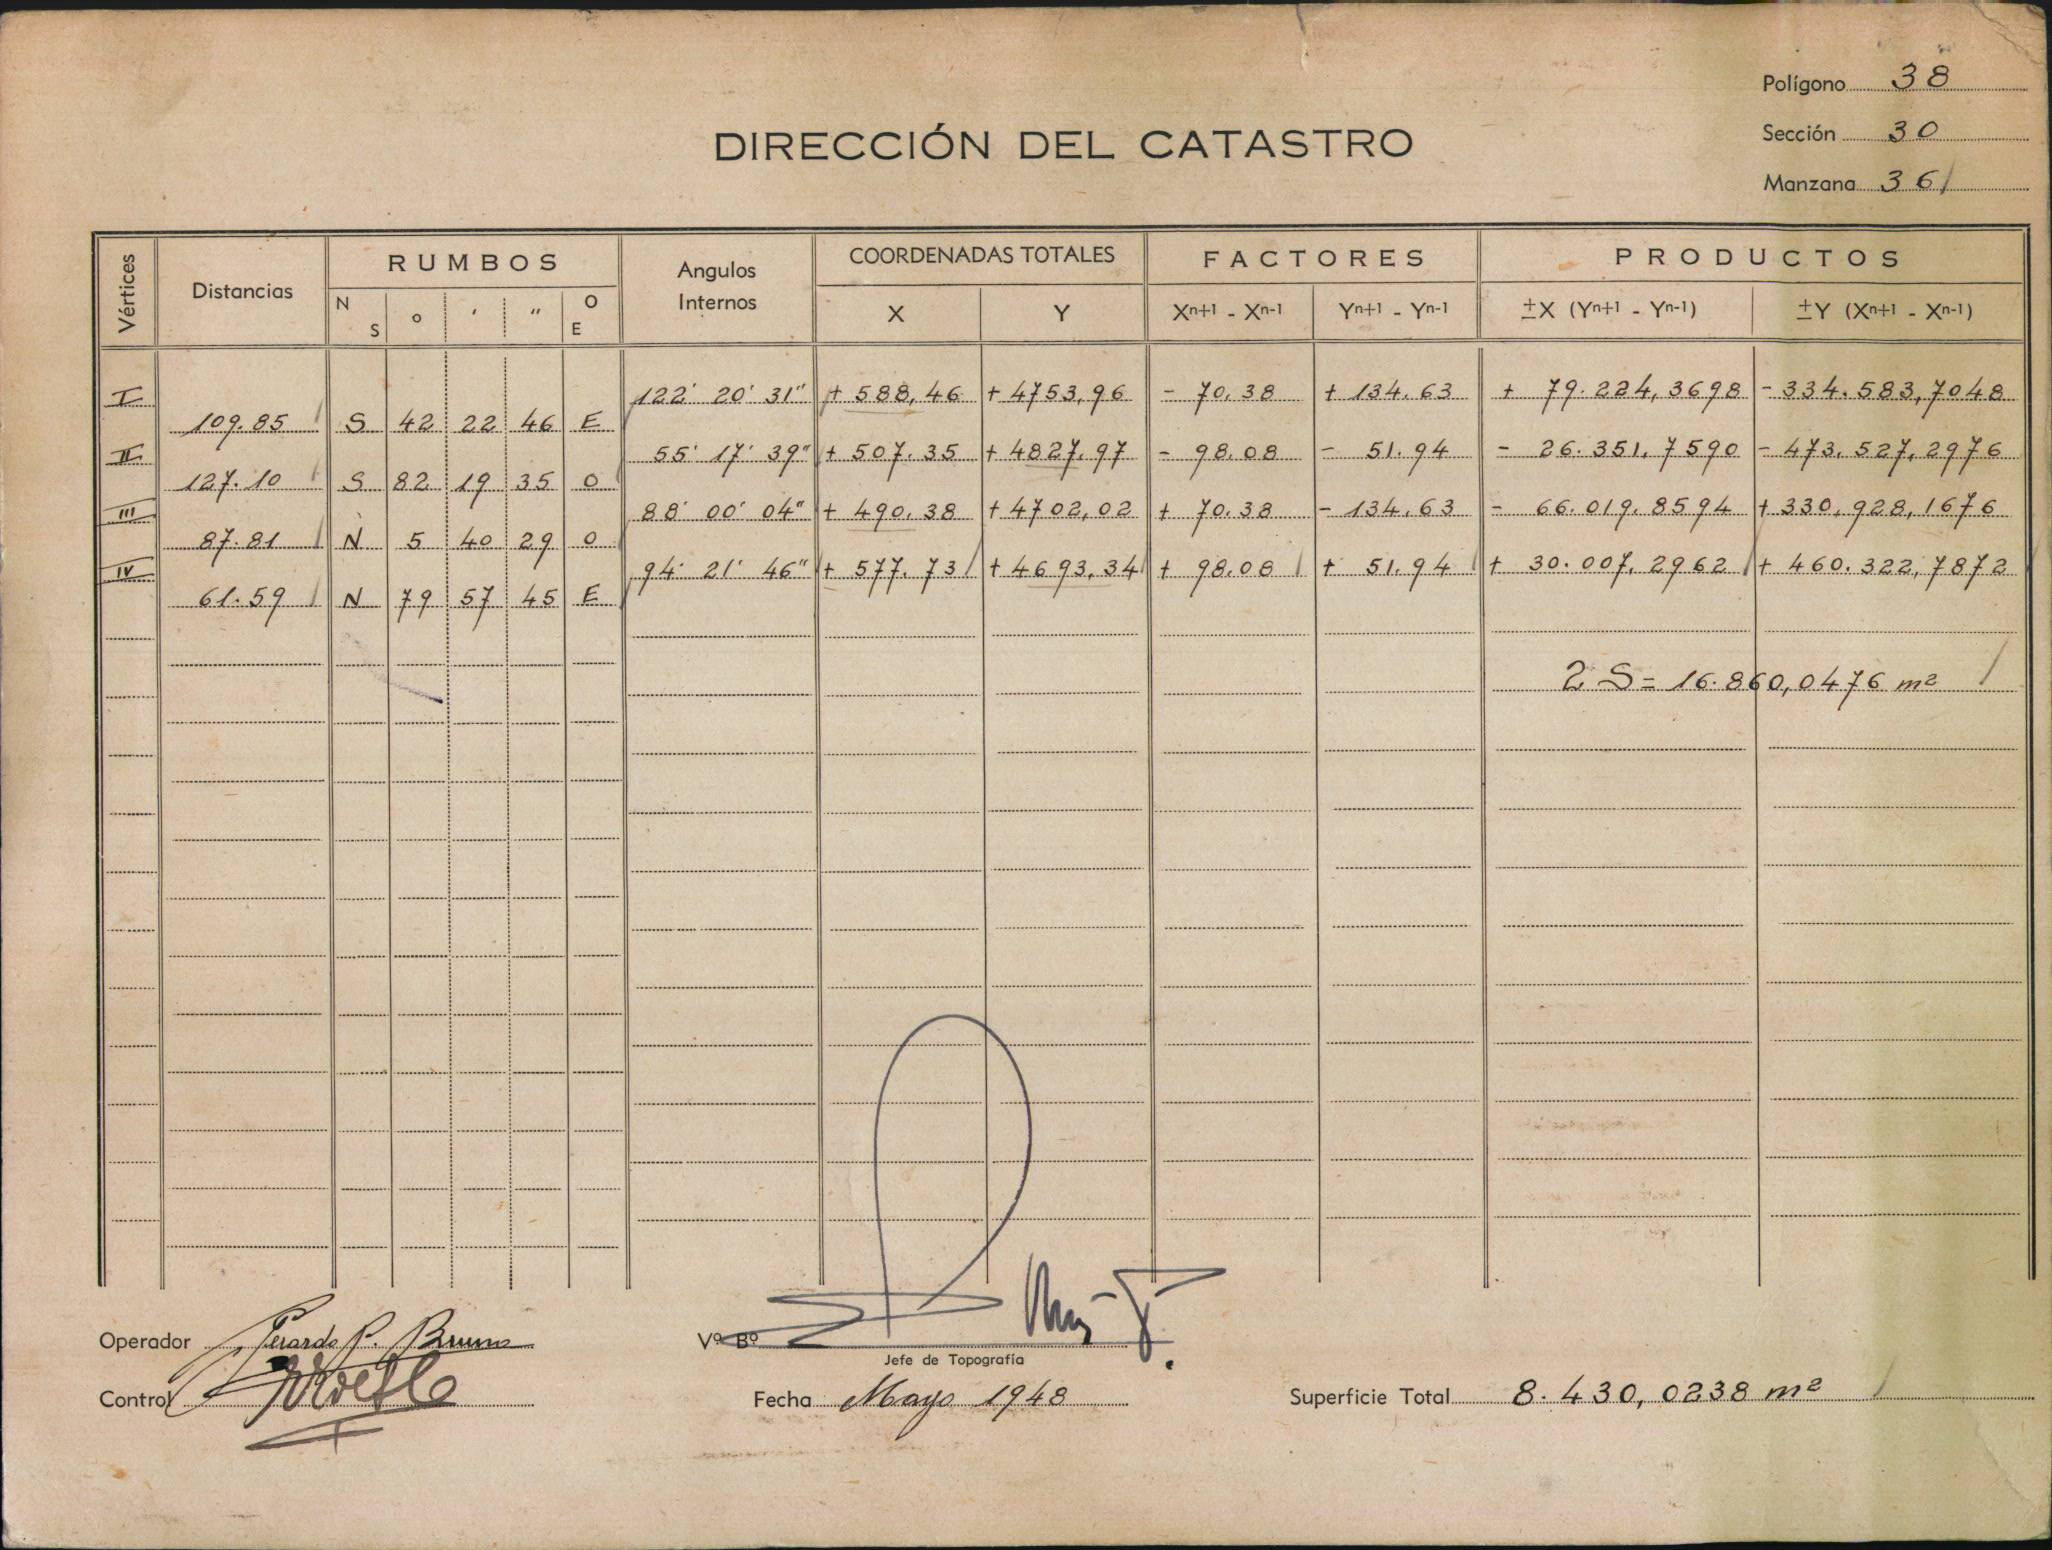 Polígono 38
DIRECCIÓN DEL CATASTRO
Sección 30
Manzana 361
Vértices Distancias RUMBOS Angulos Internos COORDENADAS TOTALES FACTORES PRODUCTOS
N S o ′ ″ O E X Y Xn+1 - Xn-1 Yn+1 - Yn-1 ±X (Yn+1 - Yn-1) ±Y (Xn+1 - Xn-1)
I 122° 20' 31" + 588,46 + 4753,96 - 70,38 + 134.63 + 79.224,3698 - 334.583,7048
109.85 S 42 22 46 E
II 55° 17' 39" + 507.35 + 4827.97 - 98.08 - 51.94 - 26.351,7590 - 473.527,2976
127.10 S 82 19 35 O
III 88° 00' 04" + 490.38 + 4702,02 + 70.38 - 134.63 - 66.019.8594 + 330.928,1676
87.81 N 5 40 29 O
IV 94° 21' 46" + 577.73 + 4693,34 + 98.08 + 51.94 + 30.007.2962 + 460.322,7872
61.59 N 79 57 45 E
2 S = 16.860,0476 m²
Operador Gerardo P. Bruno
Vº Bº
Jefe de Topografía
Control
Fecha Mayo 1948
Superficie Total 8.430,0238 m²